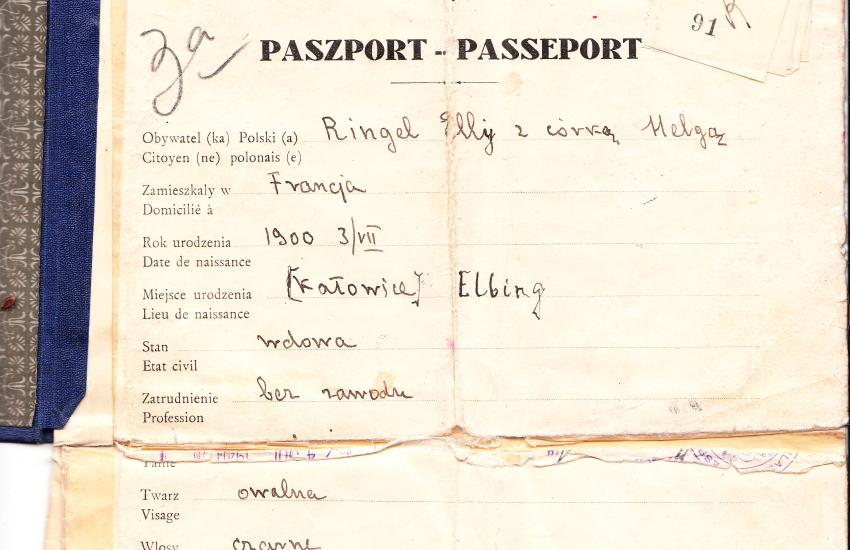 91 R
za
PASZPORT - PASSEPORT
Obywatel (ka) Polski (a) Ringel Elly z córką Helgą
Citoyen (ne) polonais (e)
Zamieszkały w Francja
Domicilié à
Rok urodzenia 1900 3/VII
Date de naissance
Miejsce urodzenia [Katowice] Elbing
Lieu de naissance
Stan wdowa
Etat civil
Zatrudnienie bez zawodu
Profession
Taille
Twarz owalna
Visage
Włosy czarne